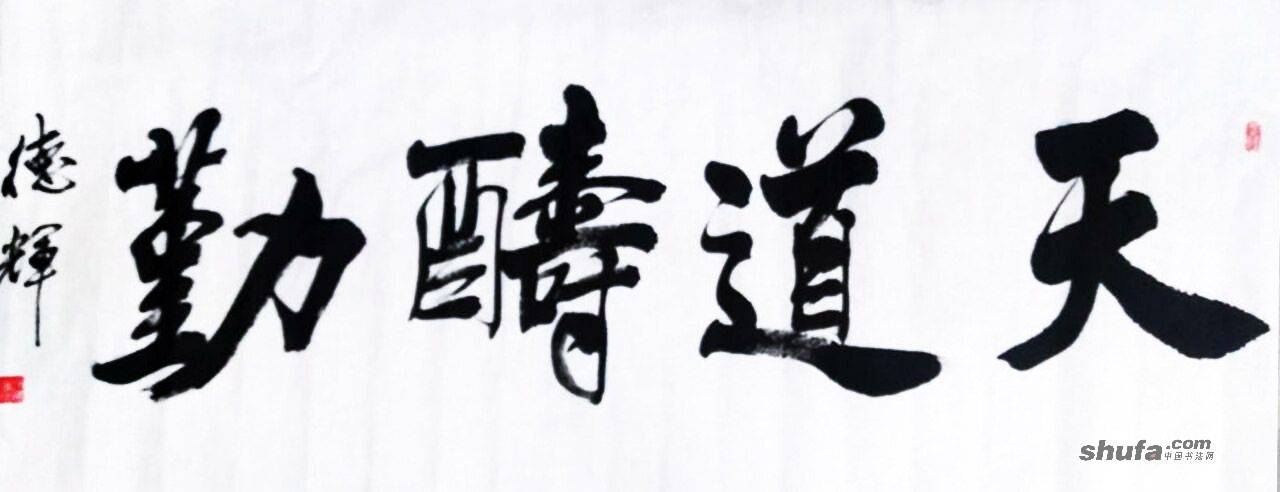 天道醻勤
德輝
shufa.com
中国书法网